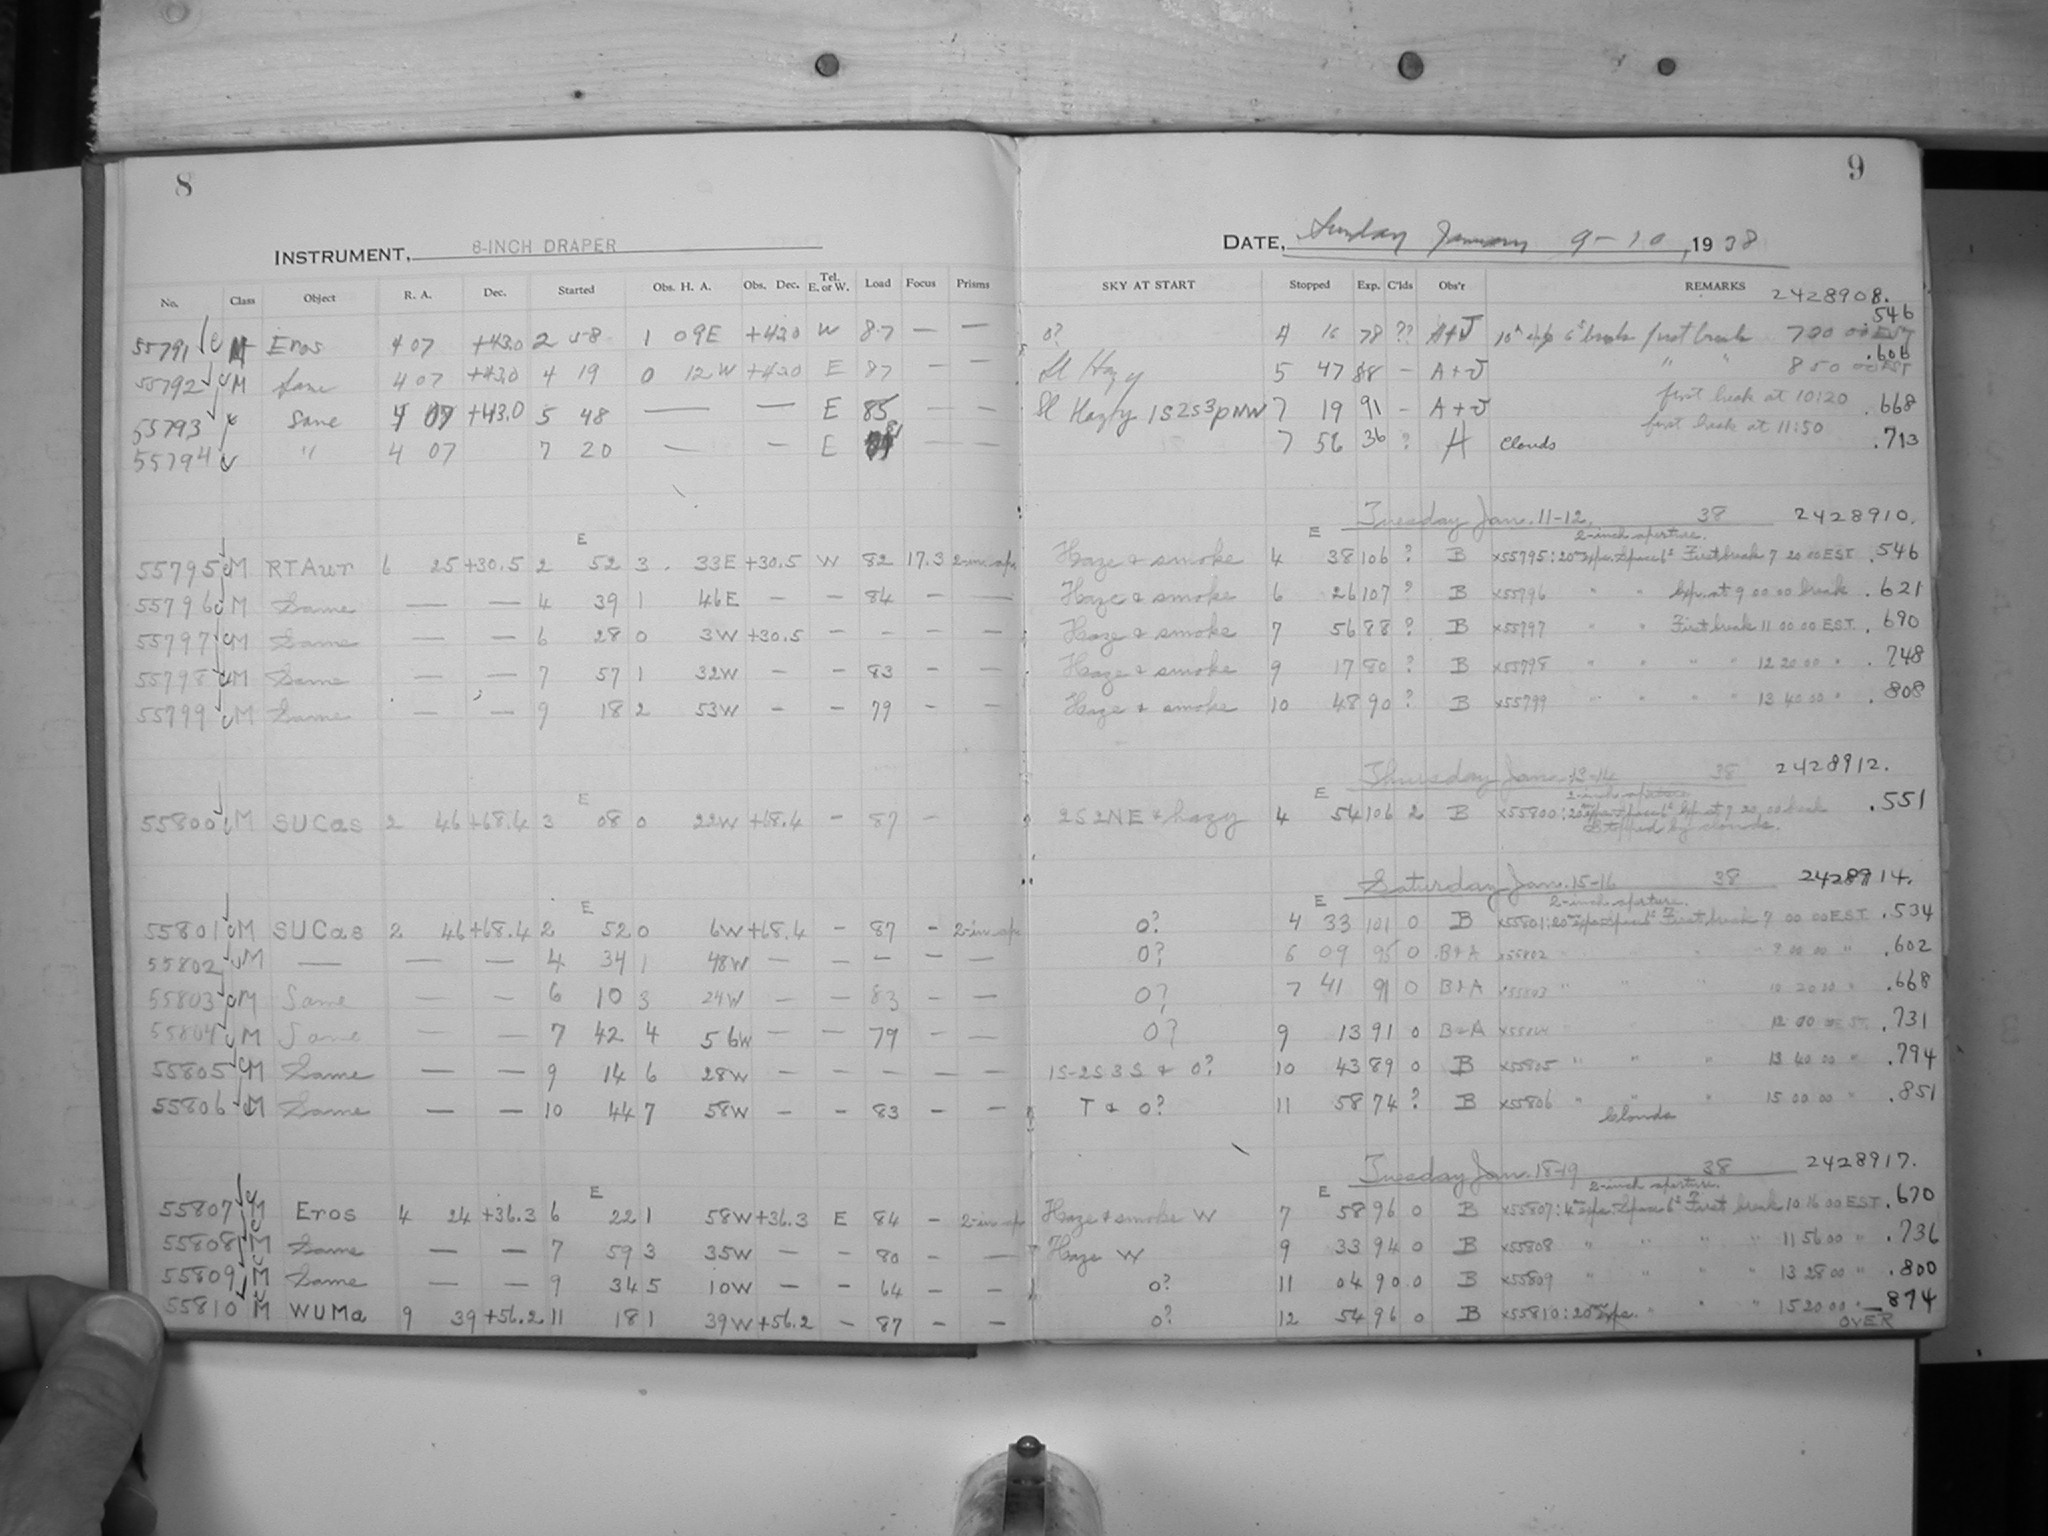 8
INSTRUMENT, 8-INCH DRAPER
No. Class Object R. A. Dec. Started Obs. H. A. Obs. Dec. Tel. E. or W. Load Focus Prisms
55791 M Eros 4 07 +43.0 2 58 1 09E +43.0 W 87 — —
55792 M Same 4 07 +43.0 4 19 0 12W +43.0 E 87 — —
55793 Same 4 07 +43.0 5 48 — — E 85 — —
55794 " 4 07 7 20 — — E — —
E
55795 M RTAur 6 25 +30.5 2 52 3 33E +30.5 W 82 17.3 2-in. ap.
55796 M Same — — 4 39 1 46E — — 84 — —
55797 M Same — — 6 28 0 3W +30.5 — — — —
55798 M Same — — 7 57 1 32W — — 83 — —
55799 M Same — — 9 18 2 53W — — 79 — —
E
55800 M SUCas 2 46 +68.4 3 08 0 22W +68.4 — 87 —
E
55801 M SUCas 2 46 +68.4 2 52 0 6W +68.4 — 87 — 2-in. ap
55802 M — — — 4 34 1 48W — — — — —
55803 M Same — — 6 10 3 24W — — 83 — —
55804 M Same — — 7 42 4 56W — — 79 — —
55805 M Same — — 9 14 6 28W — — — — —
55806 M Same — — 10 44 7 58W — — 83 — —
E
55807 M Eros 4 24 +36.3 6 22 1 58W +36.3 E 84 — 2-in. ap
55808 M Same — — 7 59 3 35W — — 80 — —
55809 M Same — — 9 34 5 10W — — 64 — —
55810 M WUMa 9 39 +56.2 11 18 1 39W +56.2 — 87 — —
9
DATE, Sunday January 9-10, 1938
SKY AT START Stopped Exp. C'lds Obs'r REMARKS 2428908.
0? 4 16 78 ?? A+J first break 7 00 00 EST .546
Sl Hazy 5 47 88 — A+J " " 8 50 00 EST .606
Sl Hazy 1S2S3pNW 7 19 91 — A+J first break at 10:20 .668
7 56 36 ? A clouds first break at 11:50 .713
Tuesday Jan. 11-12, 38 2428910.
E 2-inch aperture.
Haze & smoke 4 38 106 ? B x55795: 20m exps. Space 6s First break 7 20 00 EST .546
Haze & smoke 6 26 107 ? B x55796 " " Exp. at 9 00 00 break .621
Haze & smoke 7 56 88 ? B x55797 " " First break 11 00 00 EST. .690
Haze & smoke 9 17 80 ? B x55798 " " " " 12 20 00 " .748
Haze & smoke 10 48 90 ? B x55799 " " " " 13 40 00 " .808
Thursday Jan. 13-14 38 2428912.
E 2-inch aperture
2S2NE & hazy 4 54 106 2 B x55800: 20m exps. Space 6s Exp at 7 20 00 break .551
Stopped by clouds.
Saturday Jan. 15-16 38 2428914.
E 2-inch aperture.
0? 4 33 101 0 B x55801: 20m exps. Space 6s First break 7 00 00 EST .534
0? 6 09 95 0 B+A x55802 .602
0? 7 41 91 0 B+A x55803 " " " 10 20 00 " .668
0? 9 13 91 0 B+A 12 00 00 .731
1S-2S3S & 0? 10 43 89 0 B x55805 " " " 13 40 00 " .794
T & 0? 11 58 74 ? B x55806 " " " 15 00 00 " .851
Clouds
Tuesday Jan. 18-19 38 2428917.
E 2-inch aperture.
Haze & smoke W 7 58 96 0 B x55807: 4m exps. Space 6s First break 10 16 00 EST .670
Haze W 9 33 94 0 B x55808 " " " " 11 56 00 " .736
0? 11 04 90 0 B x55809 " " " " 13 28 00 " .800
0? 12 54 96 0 B x55810: 20m exps. " " " 15 20 00 " .874
OVER